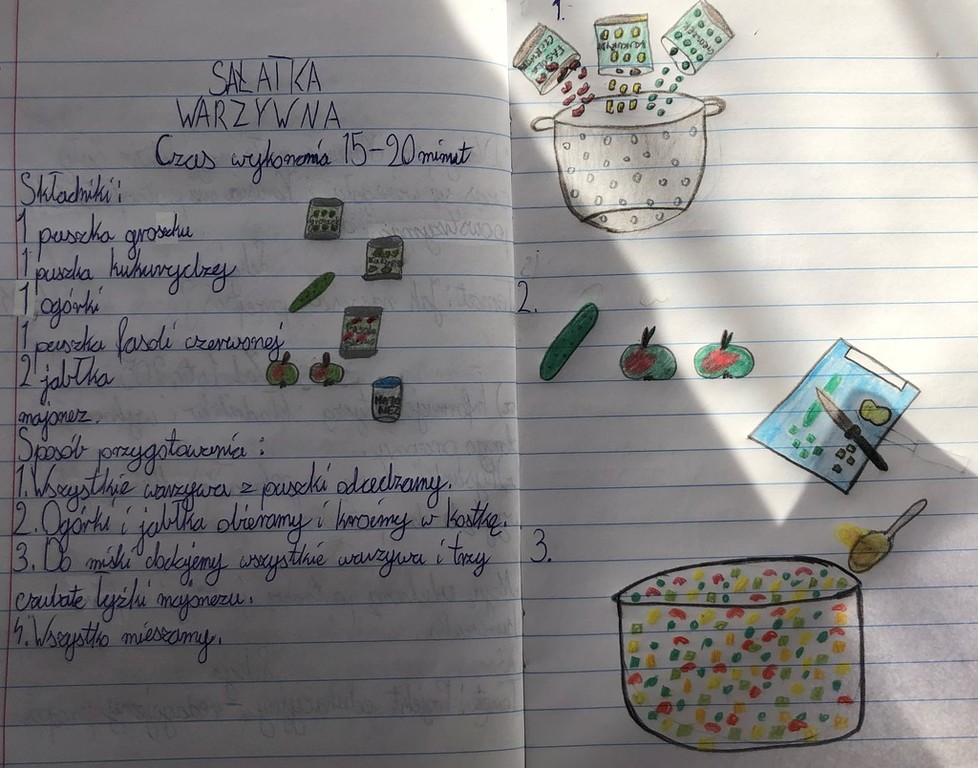 SAŁATKA
WARZYWNA
Czas wykonania 15-20 minut
Składniki:
1 puszka groszku
1 puszka kukurydzy
1 ogórki
1 puszka fasoli czerwonej
2 jabłka
majonez.
MAJO
NEZ
Sposób przygotowania:
1. Wszystkie warzywa z puszki odcedzamy.
2. Ogórki i jabłka obieramy i kroimy w kostkę.
3. Do miski dodajemy wszystkie warzywa i trzy
czubate łyżki majonezu.
4. Wszystko mieszamy.
1.
2.
3.